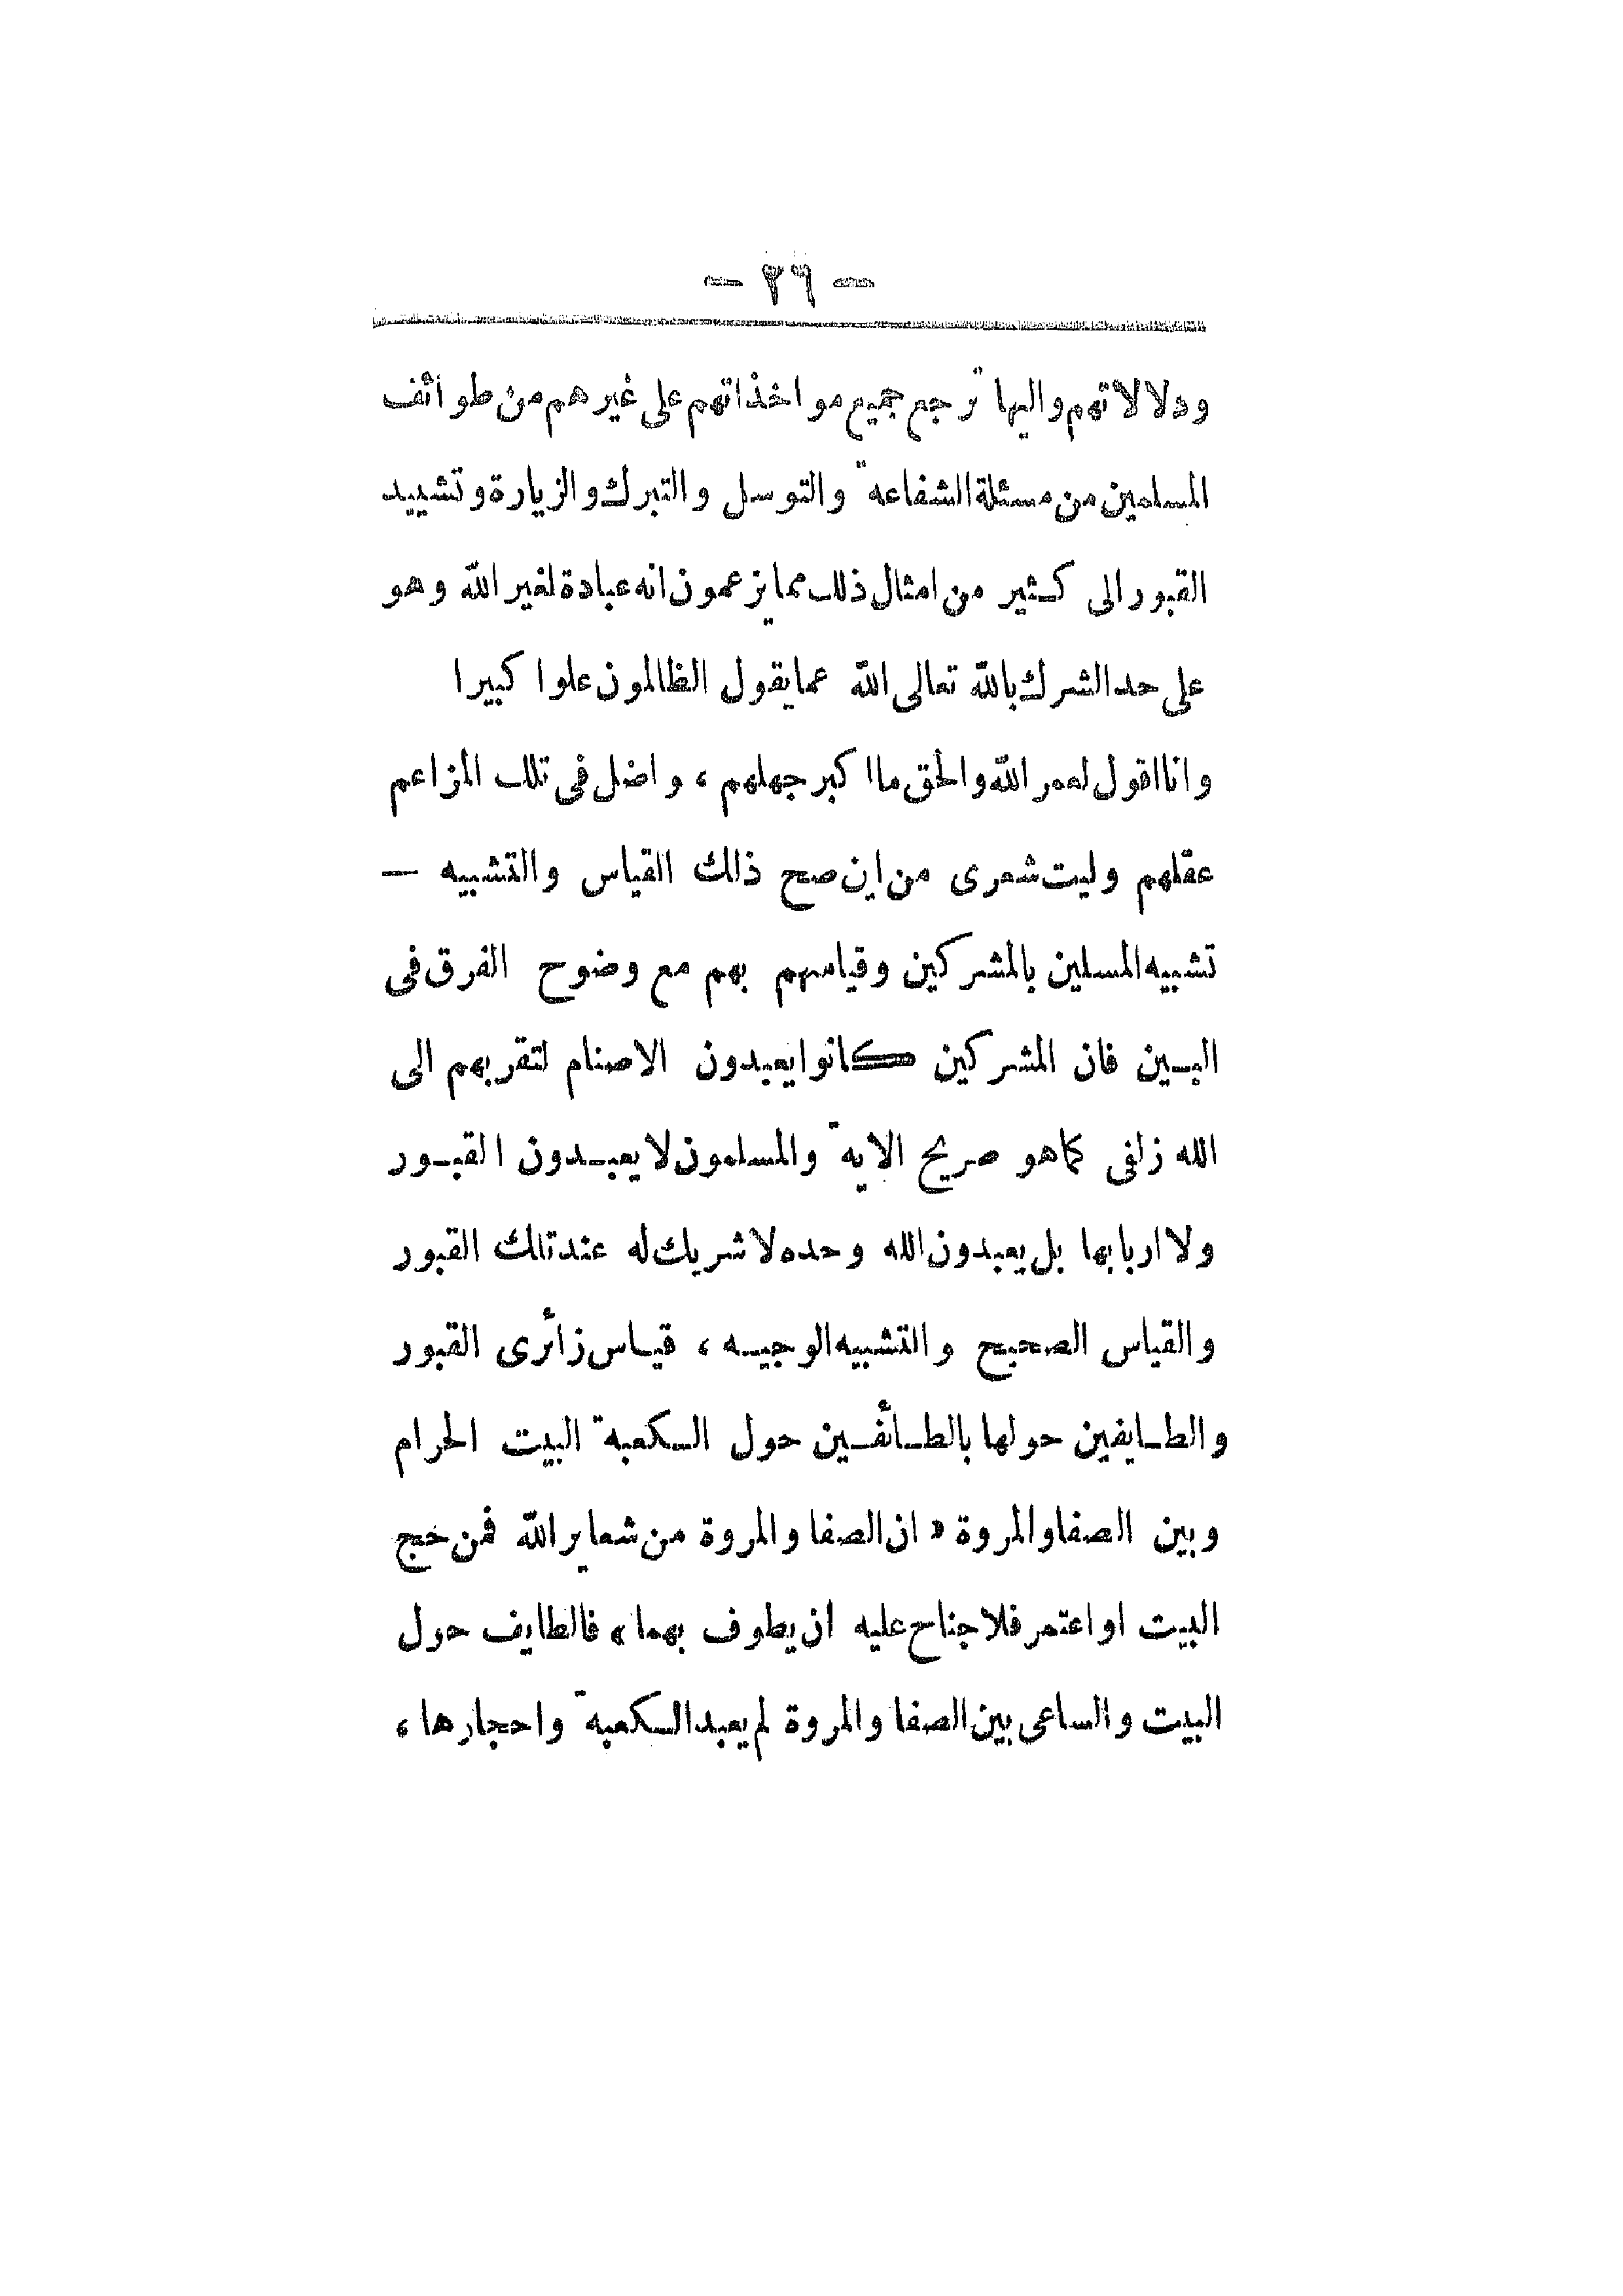 — ٢٩ —
ودلالاتهم واليها ترجع جميع مواخذاتهم على غيرهم من طوائف
المسلمين من مسئلة الشفاعة والتوسل والتبرك والزيارة وتشييد
القبور الى كثير من امثال ذلك مما يزعمون انه عبادة لغير الله وهو
على حد الشرك بالله تعالى الله عما يقول الظالمون علوا كبيرا
وانا اقول لعمر الله والحق ما اكبر جهلهم ، واضل فى تلك المزاعم
عقلهم وليت شعرى من اين صح ذلك القياس والتشبيه —
تشبيه المسلمين بالمشركين وقياسهم بهم مع وضوح الفرق فى
البين فان المشركين كانوا يعبدون الاصنام لتقربهم الى
الله زلفى كما هو صريح الاية والمسلمون لا يعبدون القبور
ولا اربابها بل يعبدون الله وحده لا شريك له عند تلك القبور
والقياس الصحيح والتشبيه الوجيه ، قياس زائرى القبور
والطايفين حولها بالطائفين حول الكعبة البيت الحرام
وبين الصفا والمروة « ان الصفا والمروة من شعاير الله فمن حج
البيت او اعتمر فلا جناح عليه ان يطوف بهما » فالطايف حول
البيت والساعى بين الصفا والمروة لم يعبد الكعبة واحجارها ،